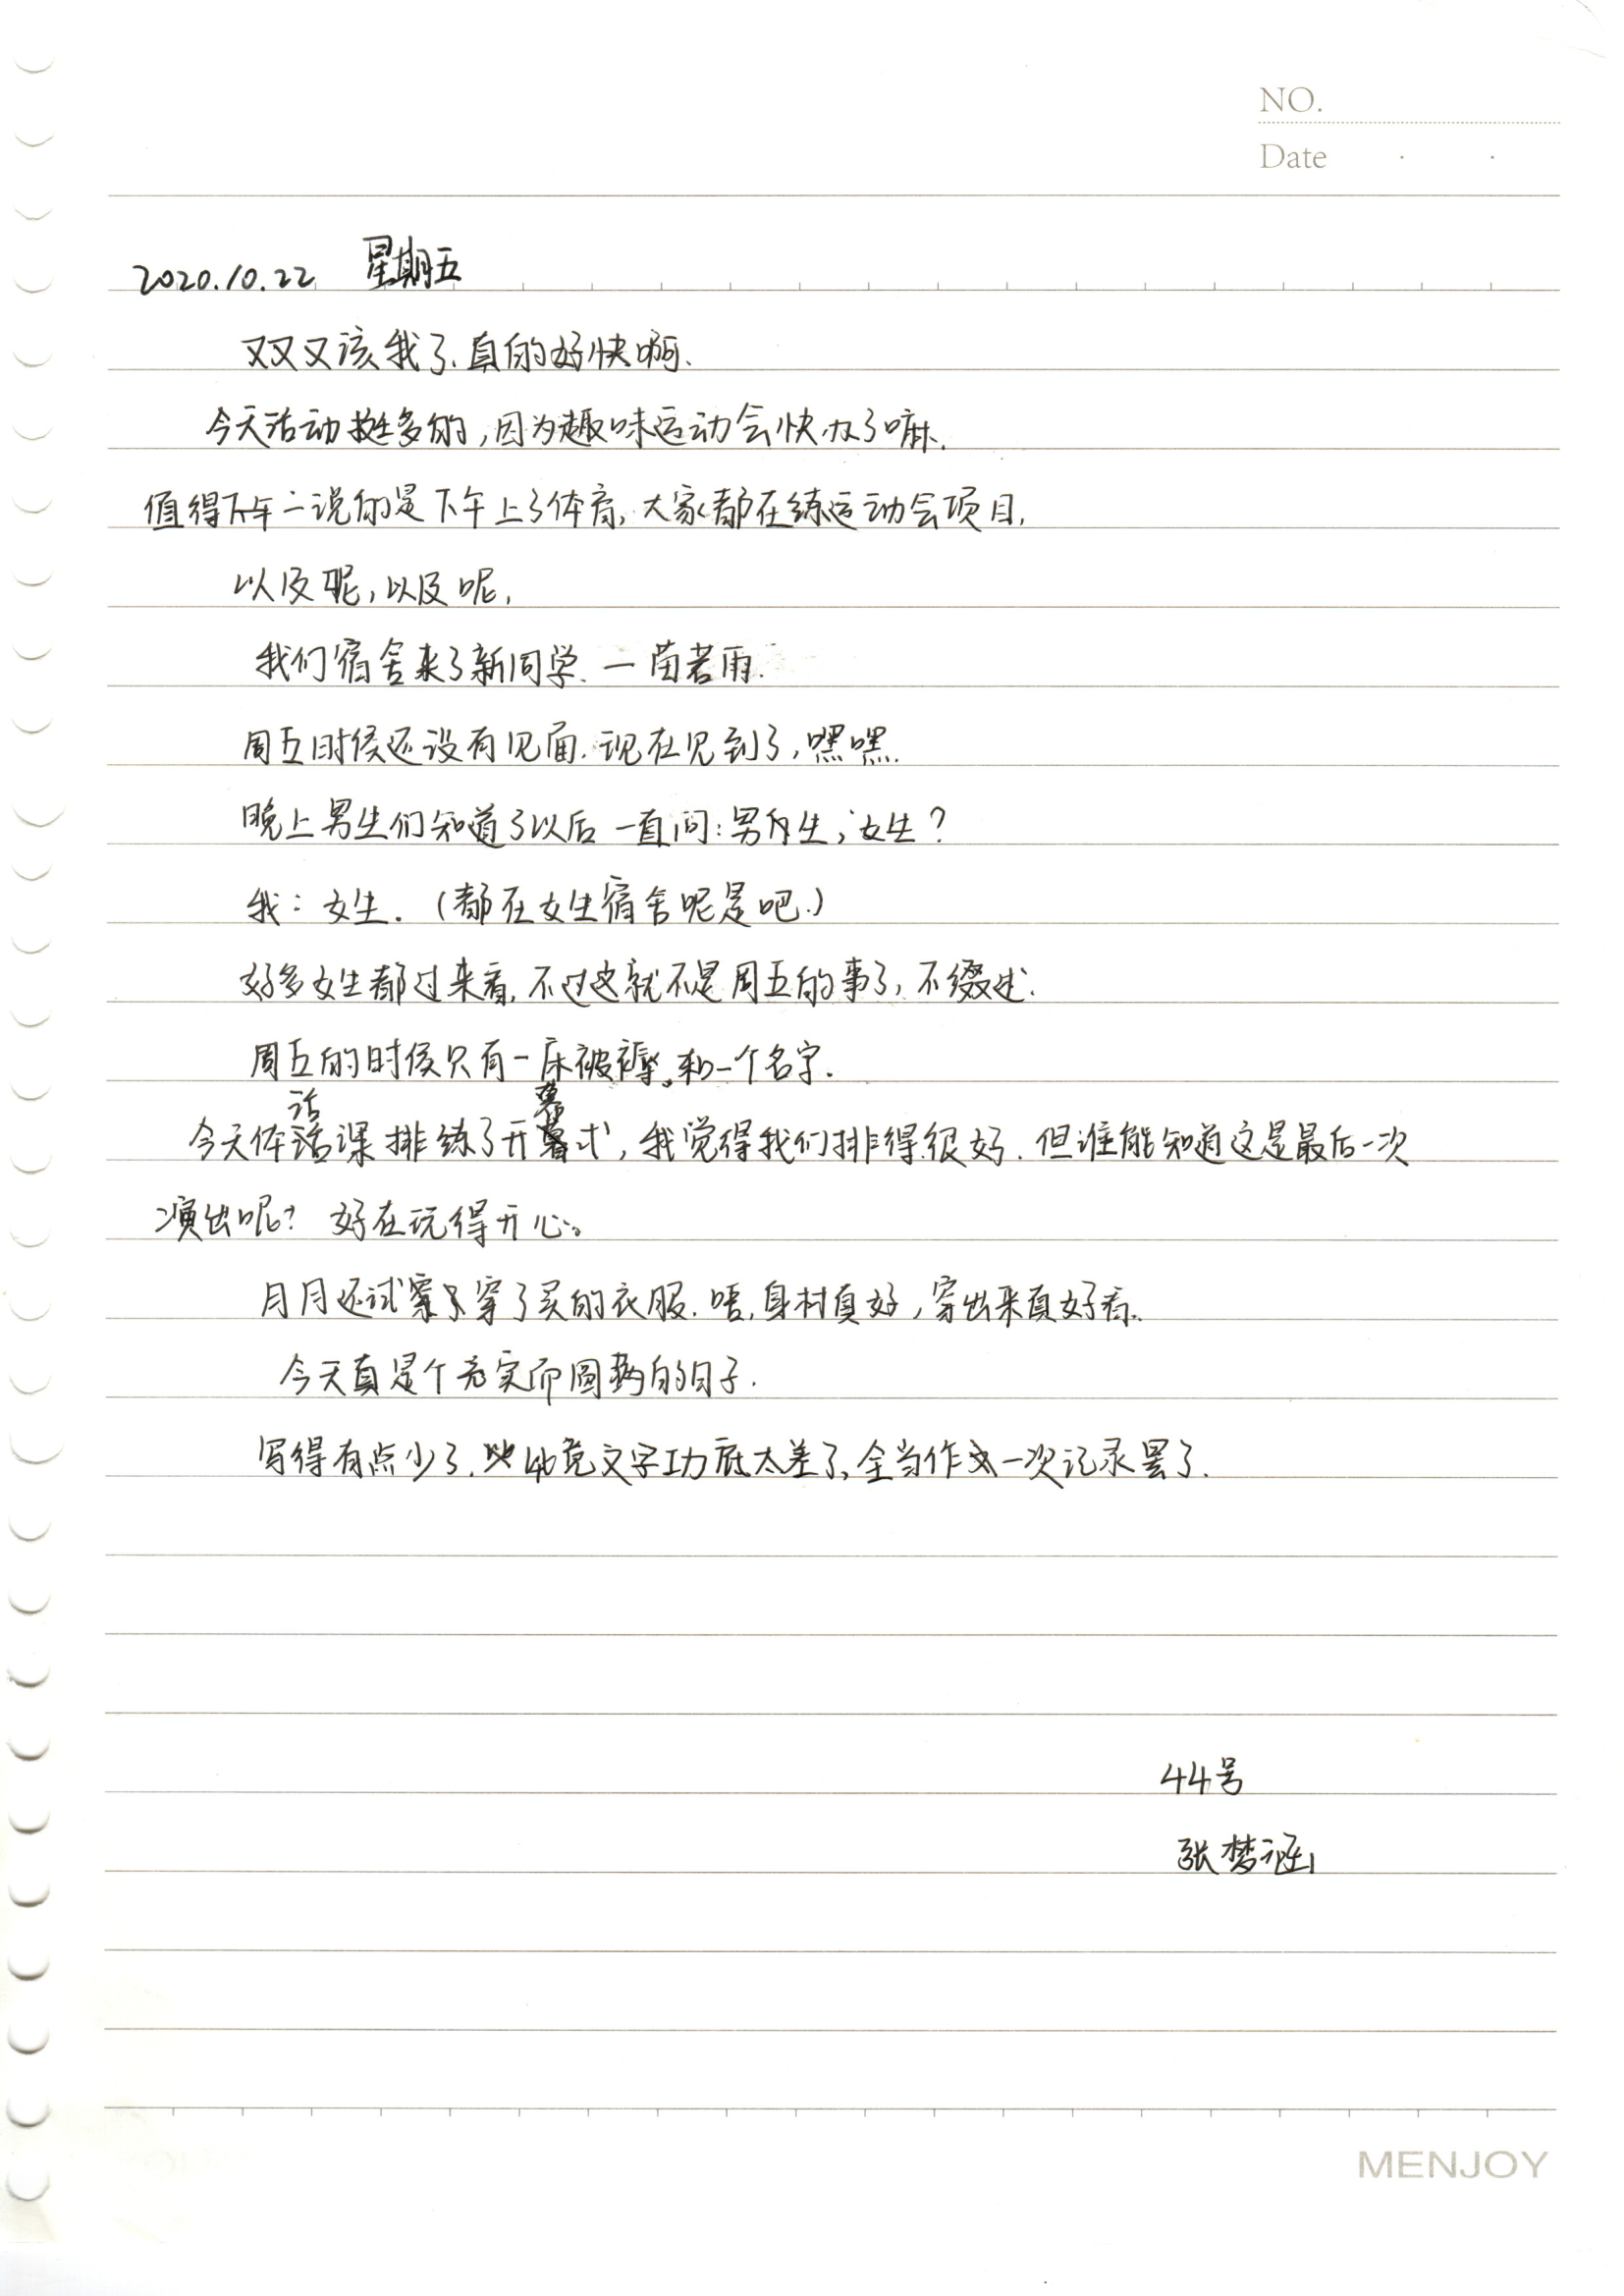 NO.
Date
2020.10.22 星期五
又又又该我了.真的好快啊.
今天活动挺多的,因为趣味运动会快办了嘛.
值得一说的是下午上了体育,大家都在练运动会项目.
以及呢,以及呢,
我们宿舍来了新同学.—苗若雨.
周五时候还没有见面.现在见到了,嘿嘿.
晚上男生们知道了以后一直问:男生,女生?
我:女生.(都在女生宿舍呢是吧.)
好多女生都过来看,不过这就不是周五的事了,不缀述.
周五的时候只有一床被褥。和一个名字.
今天体活课排练了开幕式,我觉得我们排得很好.但谁能知道这是最后一次
演出呢?好在玩得开心。
月月还试穿了买的衣服.唔,身材真好,穿出来真好看.
今天真是个充实而圆满的日子.
写得有点少了.毕竟文字功底太差了,全当作一次记录罢了.
44号
张梦涵
MENJOY